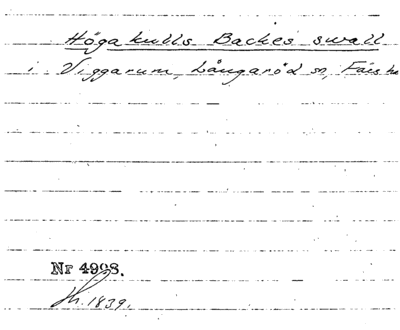 Högakulls Backes swall
i Viggarum, Långaröd sn, Färs hd
Nr 4998.
1839.